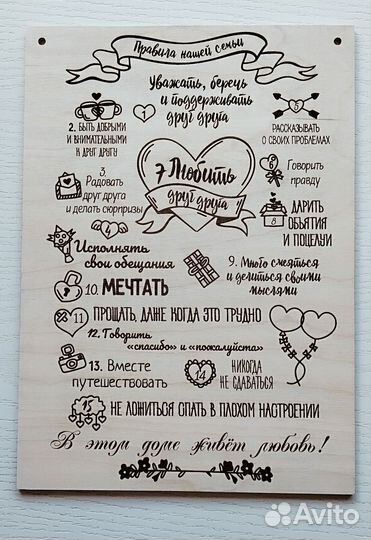 Правила нашей семьи
Уважать, беречь
и поддерживать
друг друга
1
2. БЫТЬ ДОБРЫМИ
И ВНИМАТЕЛЬНЫМИ
К ДРУГ ДРУГУ
3.
Радовать
друг друга
и делать сюрпризы
4
Исполнять
свои обещания
5
РАССКАЗЫВАТЬ
О СВОИХ ПРОБЛЕМАХ
6
Говорить
правду
7 Любить
друг друга
8
ДАРИТЬ
ОБЪЯТИЯ
И ПОЦЕЛУИ
9. Много смеяться
и делиться своими
мыслями
10. МЕЧТАТЬ
11 ПРОЩАТЬ, ДАЖЕ КОГДА ЭТО ТРУДНО
12. Говорить
«спасибо» и «пожалуйста»
13. Вместе
путешествовать
14
НИКОГДА
НЕ СДАВАТЬСЯ
15 НЕ ЛОЖИТЬСЯ СПАТЬ В ПЛОХОМ НАСТРОЕНИИ
В этом доме живёт любовь!
Avito